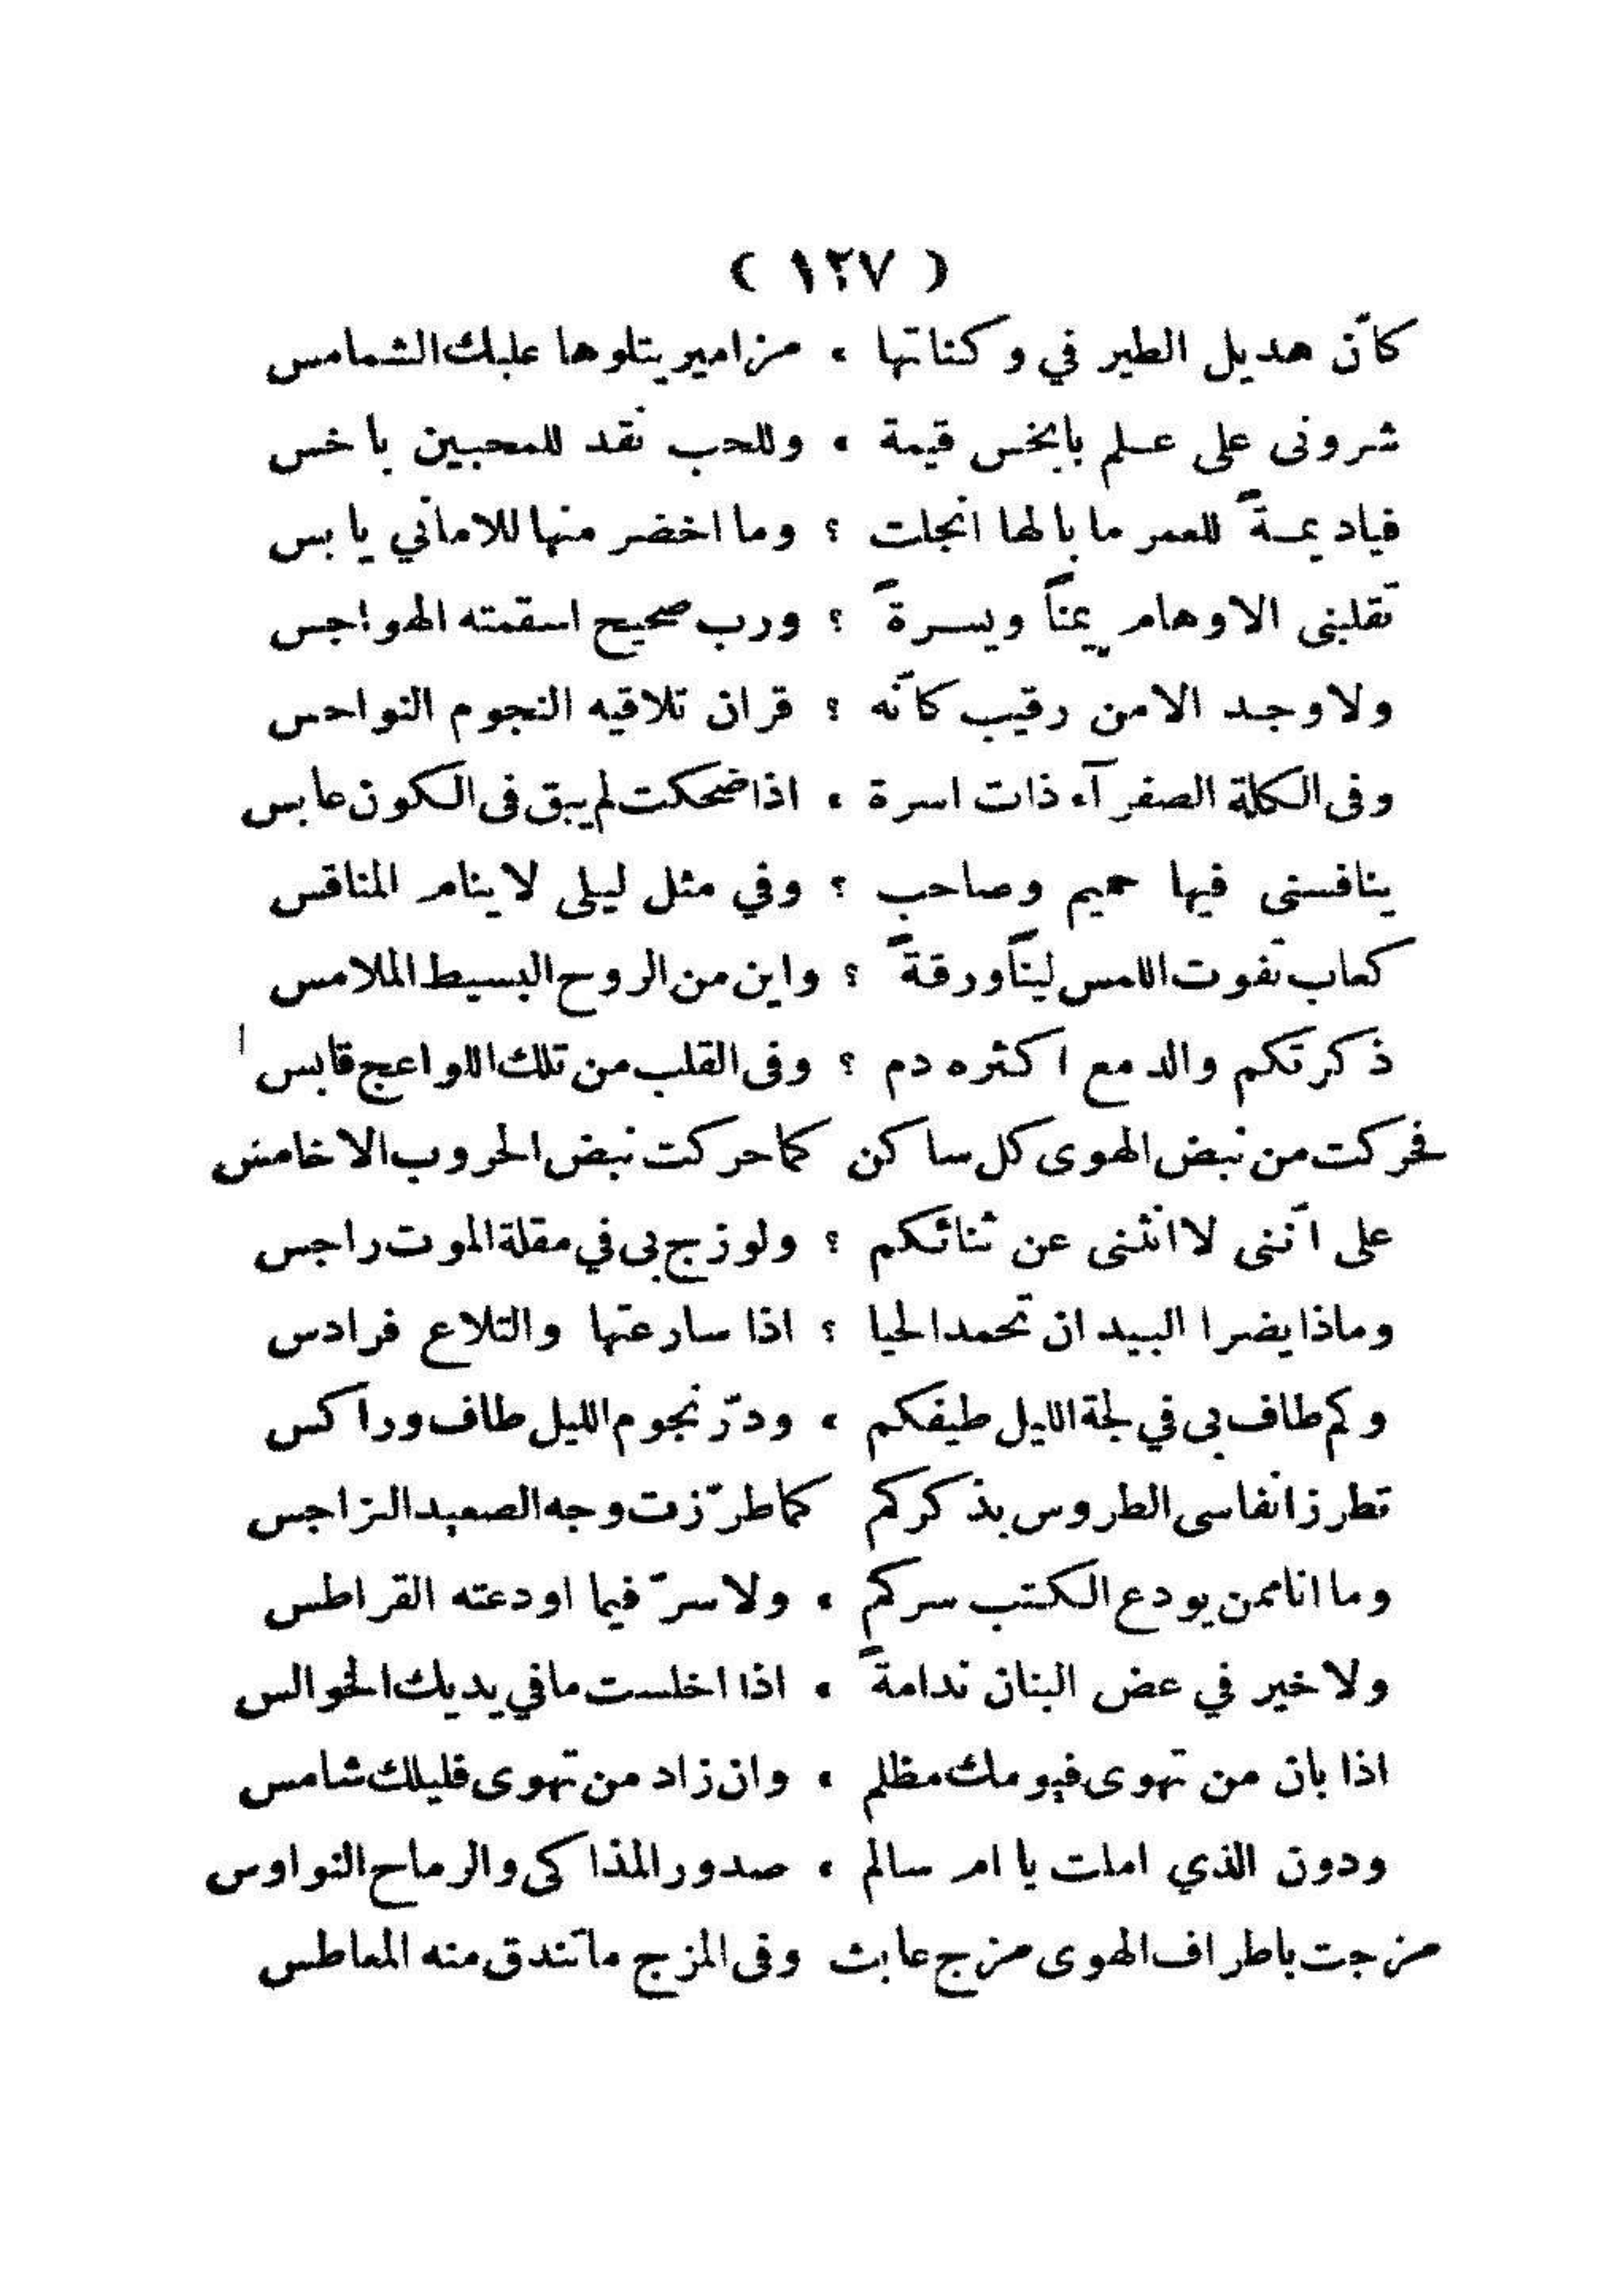 ( ١٢٧ )
كأن هديل الطير في وكناتها ، مزامير يتلوها عليك الشمامس
شرونى على عـلم بابخس قيمة ، وللحب نقد للمحبين باخس
فياديمـةً للعمر ما بالها انجلت ؟ وما اخضر منها للاماني يابس
تقلبنى الاوهام يمناً ويسرةً ؟ ورب صحيح اسقمته الهواجس
ولا وجد الامن رقيب كانّه ؟ قران تلاقيه النجوم النواحس
وفى الكلة الصفرآء ذات اسرة ، اذا ضحكت لم يبق فى الكون عابس
ينافسنى فيها حميم وصاحب ؟ وفي مثل ليلى لاينام المنافس
كعاب تفوت اللمس ليناً ورقةً ؟ واين من الروح البسيط الملامس
ذكرتكم والدمع اكثره دم ؟ وفى القلب من تلك اللواعج قابس
فحركت من نبض الهوى كل ساكن كما حركت نبض الحروب الاخامس
على اننى لاانثنى عن ثنائكم ؟ ولو زج بى في مقلة الموت راجس
وماذا يضرا البيد ان تحمد الحيا ؟ اذا سارعتها والتلاع فرادس
وكم طاف بى في لجة الليل طيفكم ، ودرّ نجوم الليل طاف وراكس
تطرز انفاسى الطروس بذكركم كما طرّزت وجه الصعيد النراجس
وما انا ممن يودع الكتب سركم ، ولا سرّ فيما اودعته القراطس
ولا خير في عض البنان ندامةً ، اذا اخلست ما في يديك الخوالس
اذا بان من تهوى فيومك مظلم ، وان زاد من تهوى فليلك شامس
ودون الذي املت يا ام سالم ، صدور المذاكى والرماح النواوس
مزجت باطراف الهوى مزج عابث وفى المزج ما تندق منه المعاطس